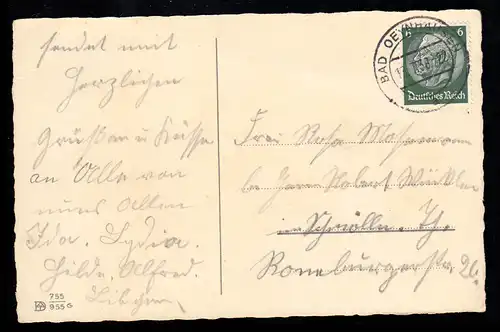 sendet mit
herzlichen
Grüßen u Küsse
an Alle von
uns Allen
Ida. Lydia.
Hilde. Alfred.
755
955 G
BAD OEYNHAUSEN
6 6
Deutsches Reich
Frau Rosa
bei Herrn Robert Winkler
in Schmölln. Th.
Ronneburgerstr. 26.